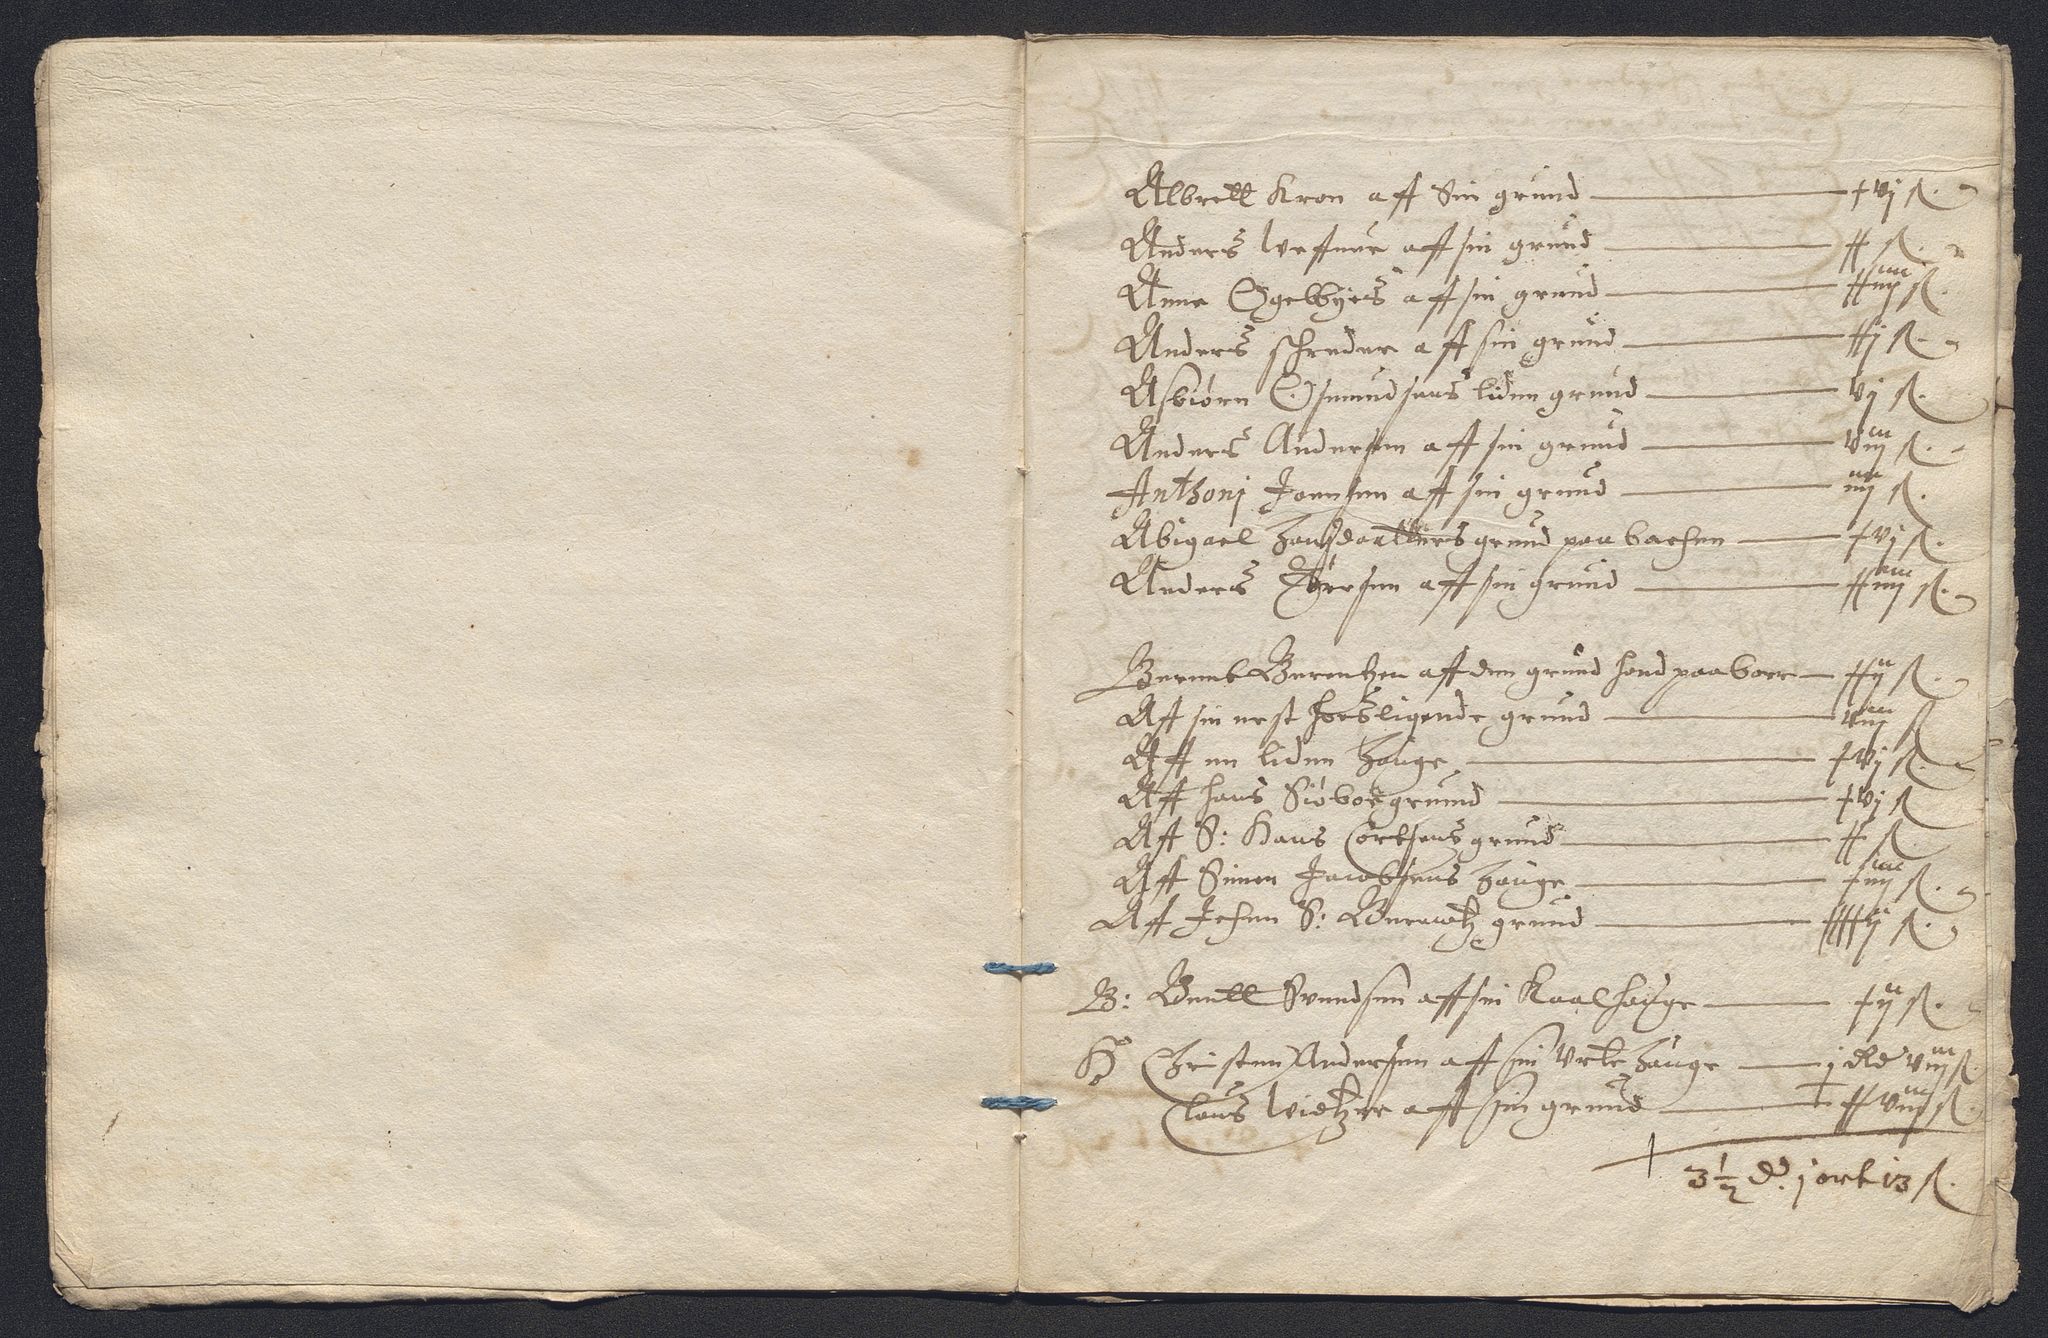 Albrett Kron aff Sin grund — xvj ß.
Anders Weffuer aff sin grund — xx ß.
Anne aff sin grund — ß.
Anders schreder aff sin grund — xxj ß.
Asbiörn Osmundsens liden grund — vj ß.
Anders Andersen aff sin grund — viij ß.
Anthonj Joensen aff sin grund — iiij ß.
Abigael Hansdaatters grund paa bachen — xvj ß.
Anders aff sin grund — xxiiij ß.
Berent Berentzen aff den grund hand paa boer — xxij ß.
Aff sin nest hosligende grund — viij ß.
Aff en liden Hauge — xvj ß.
Aff hans Siöboe grund — xvj ß
Aff S: Hans Cortsens grund — xx ß
Aff Simen Jacobsens Hauge — xiiij ß.
Aff Jehen S: grund — ß.
B: Bentt Suendsen aff sin Kaalhauge — xij ß.
Christen Andersen aff sin Vrte Hauge — j dlr viij ß.
Claus aff sin grund — xxviij ß.
3½ dr. j ort 13 ß.